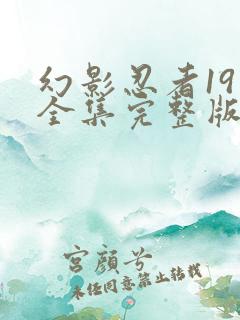 幻影忍者19
全集完整版
宫颜兮
未经同意禁止转载